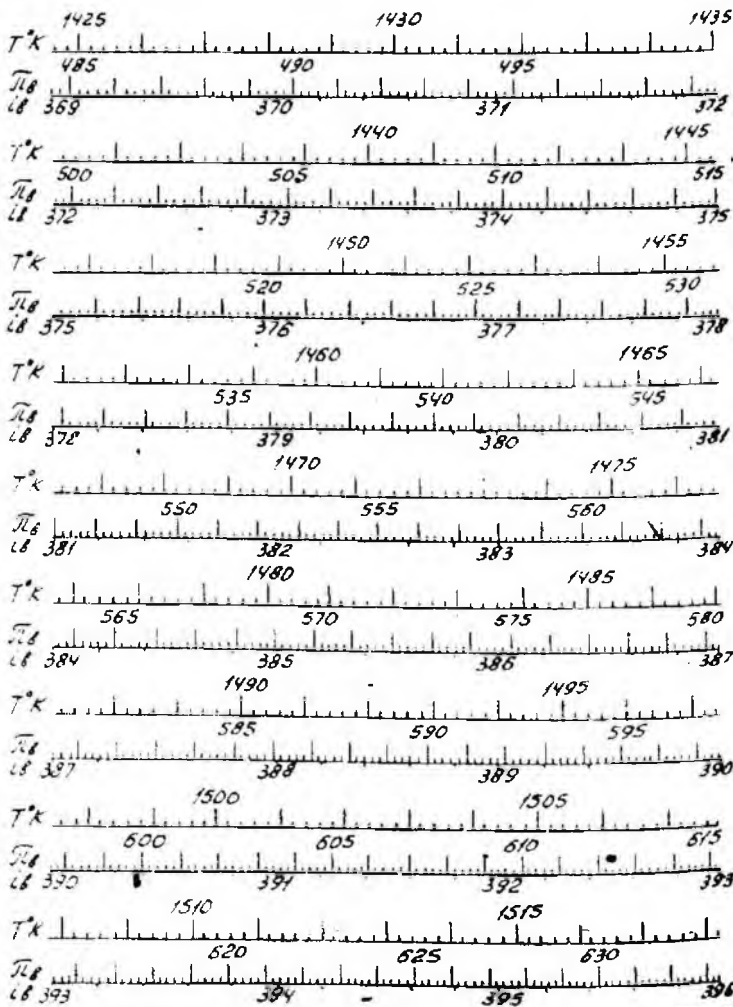 1425 1430 1435
T°K
485 490 495
πв
iв 369 370 371 372
1440 1445
T°K
500 505 510 515
πв
iв 372 373 374 375
1450 1455
T°K
520 525 530
πв
iв 375 376 377 378
1460 1465
T°K
535 540 545
πв
iв 378 379 380 381
1470 1475
T°K
550 555 560
πв
iв 381 382 383 384
1480 1485
T°K
565 570 575 580
πв
iв 384 385 386 387
1490 1495
T°K
585 590 595
πв
iв 387 388 389 390
1500 1505
T°K
600 605 610 615
πв
iв 390 391 392 393
1510 1515
T°K
620 625 630
πв
iв 393 394 395 396